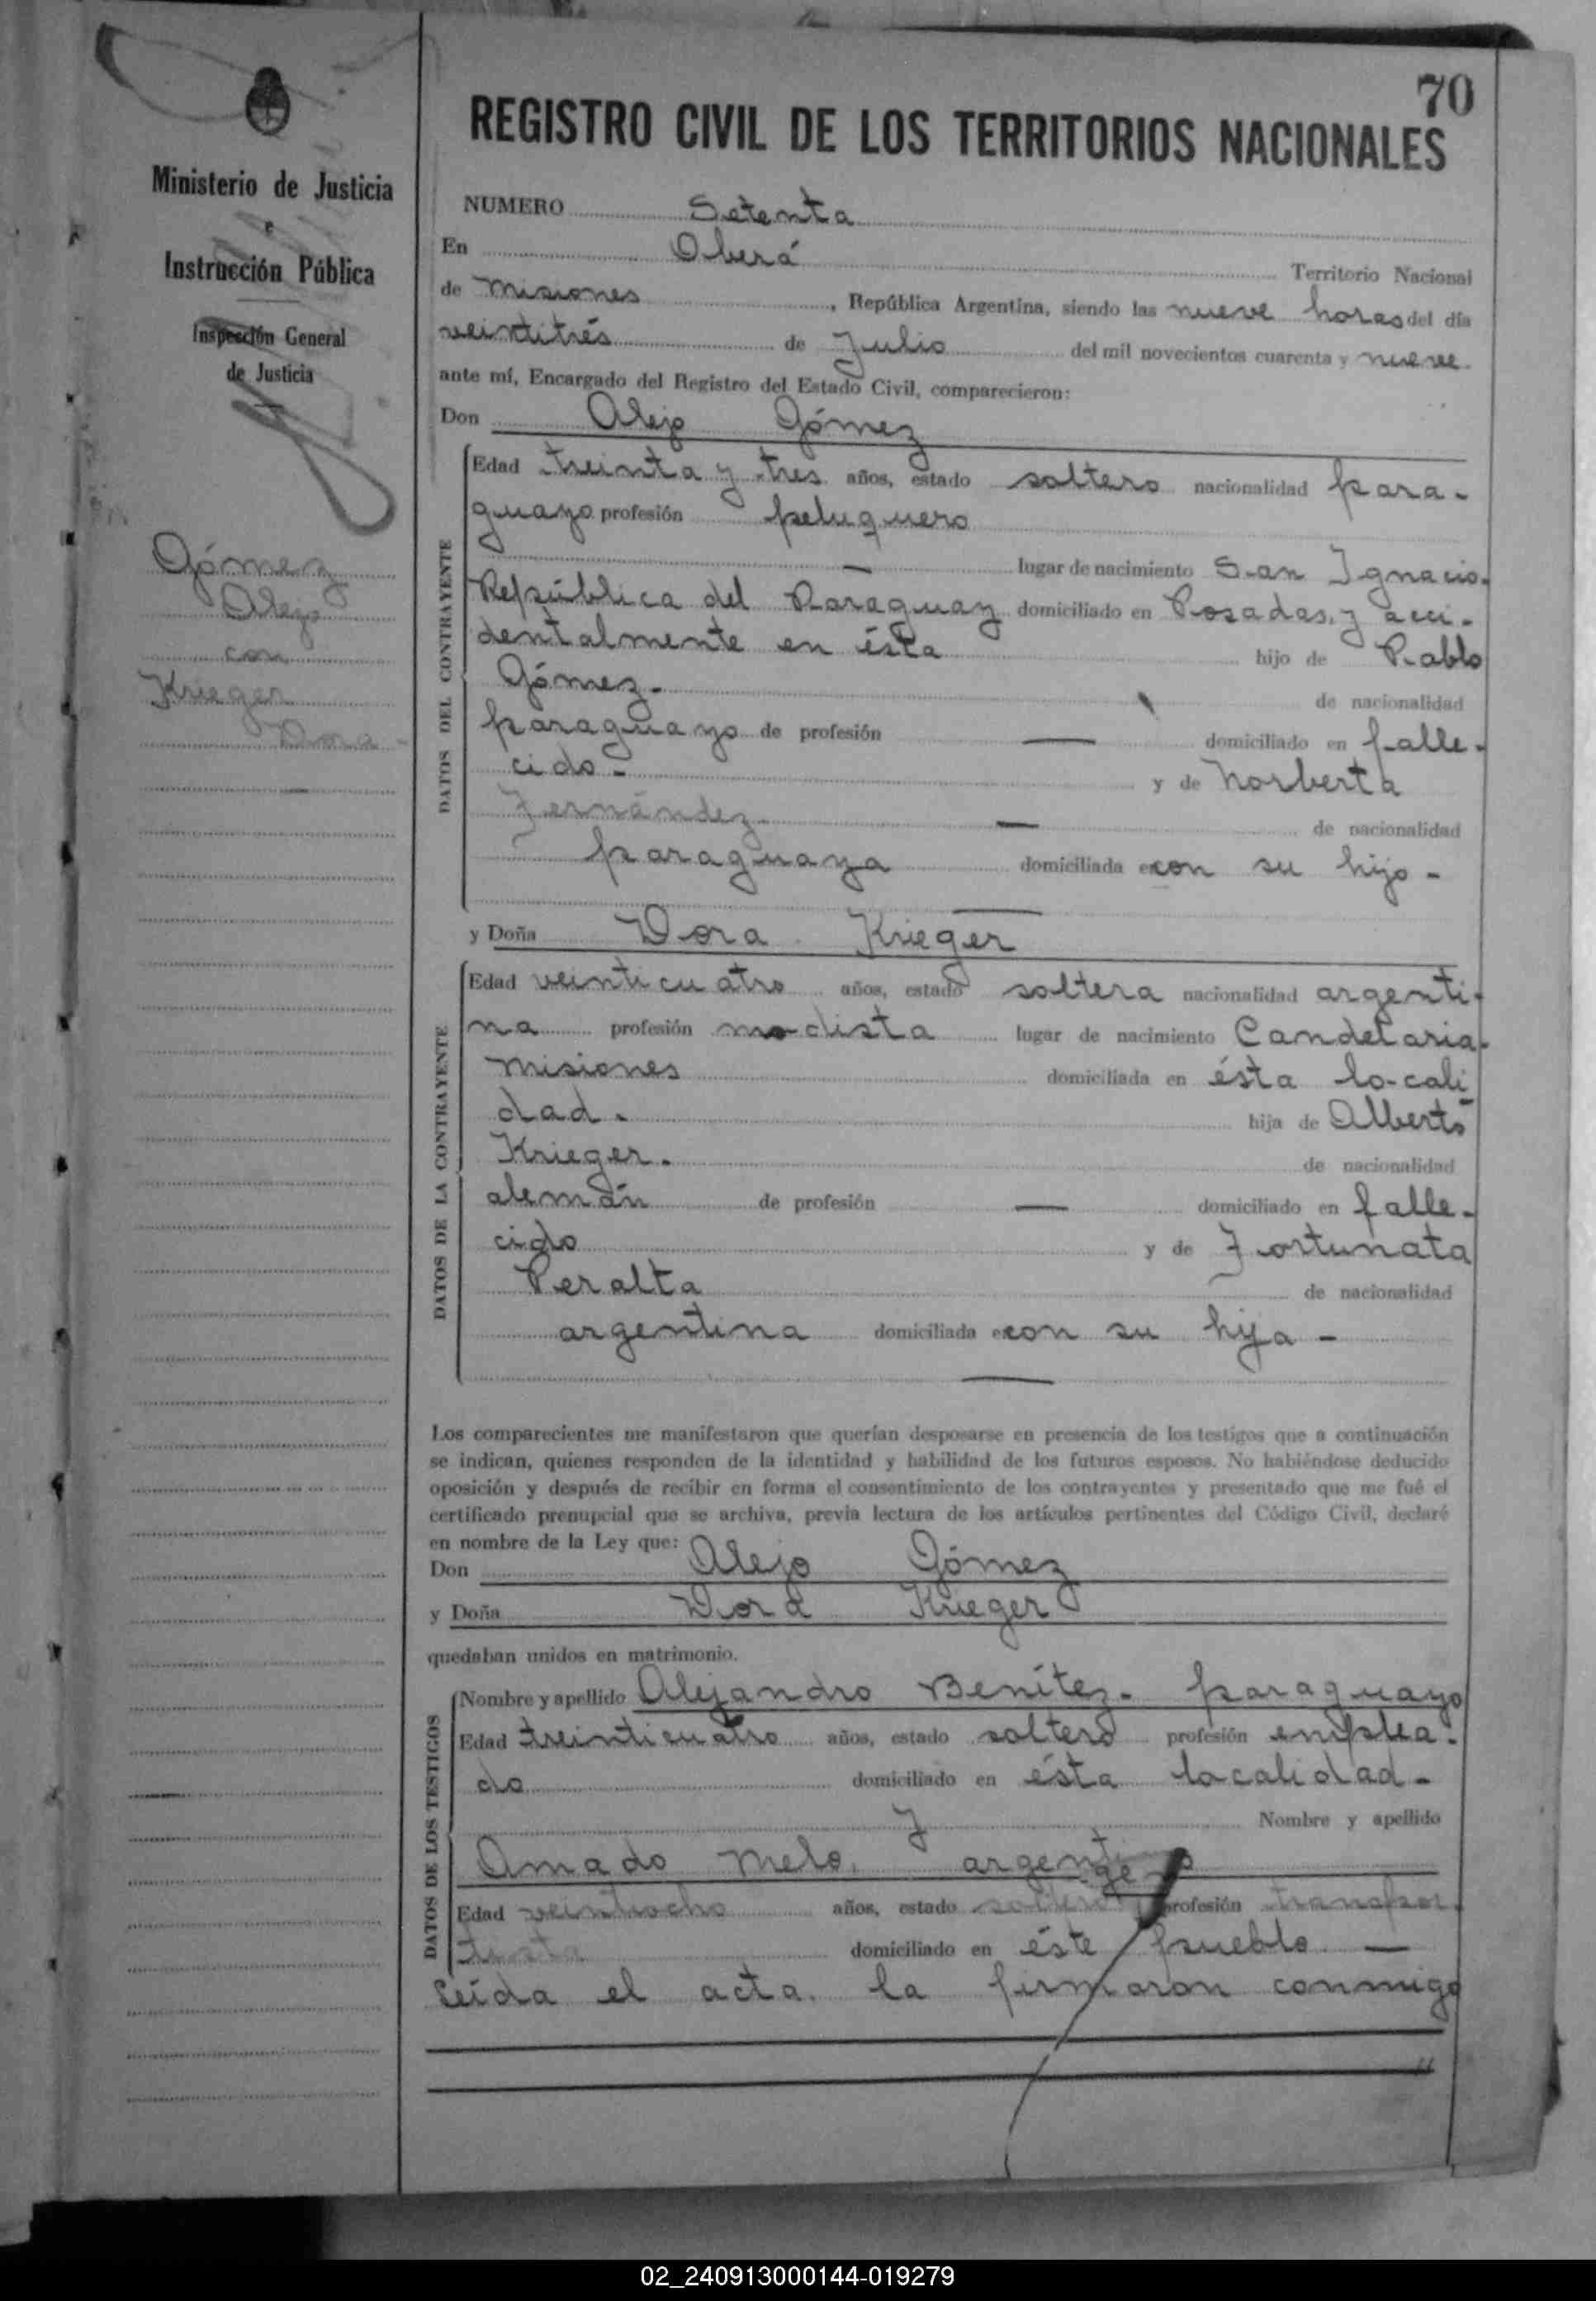 70
Ministerio de Justicia
e
Instrucción Pública
Inspección General
de Justicia
Gómez
Alejo
con
Krieger
Dora
REGISTRO CIVIL DE LOS TERRITORIOS NACIONALES
NUMERO Setenta
En Oberá Territorio Nacional
de Misiones, República Argentina, siendo las nueve horas del día
veintitrés de Julio del mil novecientos cuarenta y nueve.
ante mí, Encargado del Registro del Estado Civil, comparecieron:
Don Alejo Gómez
DATOS DEL CONTRAYENTE
Edad treinta y tres años, estado soltero nacionalidad para-
guayo profesión peluquero
— lugar de nacimiento San Ignacio-
República del Paraguay domiciliado en Posadas, y acci-
dentalmente en ésta hijo de Pablo
Gómez.- de nacionalidad
paraguayo de profesión — domiciliado en falle-
cido - y de Norberta
Fernández - — de nacionalidad
paraguaya domiciliada con su hijo -
y Doña Dora Krieger
DATOS DE LA CONTRAYENTE
Edad veinticuatro años, estado soltera nacionalidad argenti-
na profesión modista lugar de nacimiento Candelaria-
Misiones domiciliada en ésta locali
dad - hija de Alberto
Krieger. de nacionalidad
alemán de profesión — domiciliado en falle-
cido y de Fortunata
Peralta de nacionalidad
argentina domiciliada con su hija -
Los comparecientes me manifestaron que querían desposarse en presencia de los testigos que a continuación
se indican, quienes responden de la identidad y habilidad de los futuros esposos. No habiéndose deducido
oposición y después de recibir en forma el consentimiento de los contrayentes y presentado que me fué el
certificado prenupcial que se archiva, previa lectura de los artículos pertinentes del Código Civil, declaré
en nombre de la Ley que:
Don Alejo Gómez
y Doña Dora Krieger
quedaban unidos en matrimonio.
DATOS DE LOS TESTIGOS
Nombre y apellido Alejandro Benítez - paraguayo
Edad treinticuatro años, estado soltero profesión emplea-
do domiciliado en ésta localidad -
y Nombre y apellido
Amado Melo, argentino
Edad veintiocho años, estado soltero profesión transpor-
tista domiciliado en éste pueblo —
Leída el acta, la firmaron conmigo
02_240913000144-019279